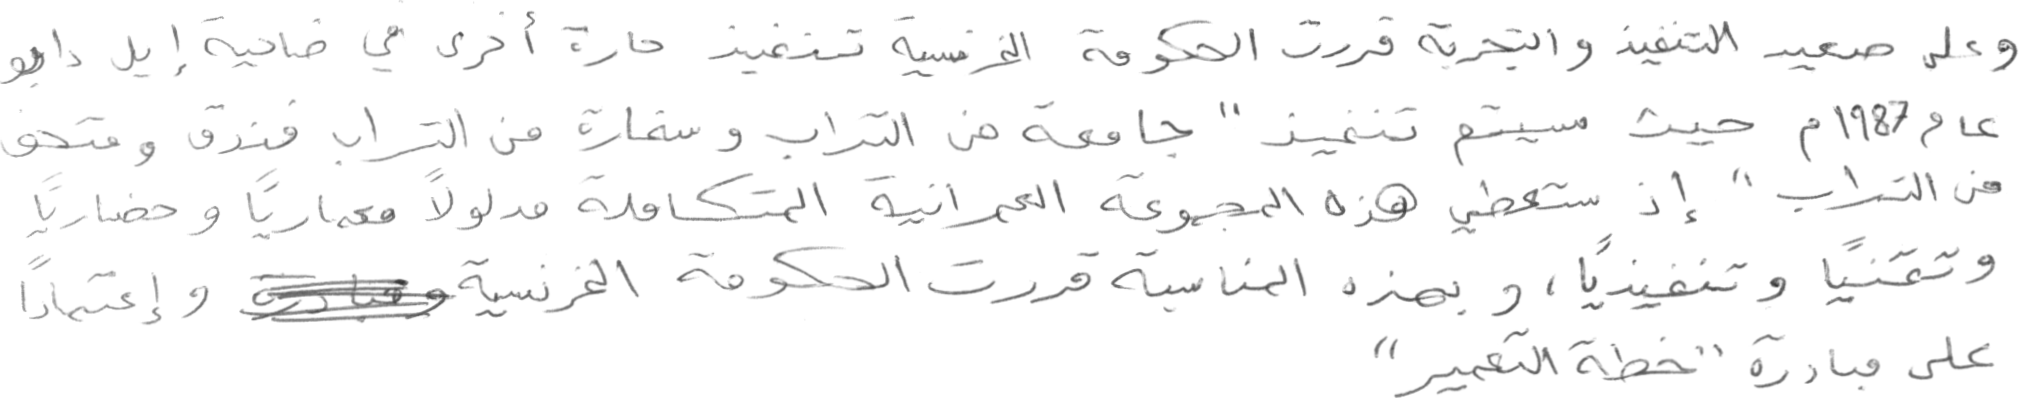 وعلى صعيد التنفيذ والتجربة قررت الحكومة الفرنسية تنفيذ حارة أخرى في ضاحية إيل دابو
عام 1987م حيث سيتم تنفيذ "جامعة من التراب وسفارة من التراب فندق ومتحف
من التراب" إذ ستعطي هذه المجموعة العمرانية المتكاملة مدلولاً معماريًا وحضاريًا
وتقنيًا وتنفيذيًا، وبهذه المناسبة قررت الحكومة الفرنسية وإعتمادًا
على مبادرة "خطة التعمير"